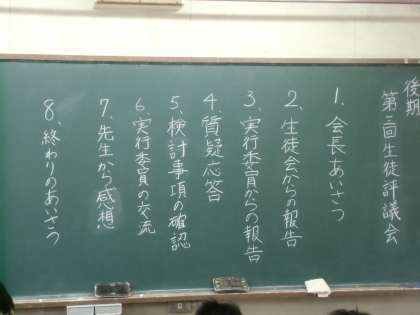 後期
第二回生徒評議会
1、会長あいさつ
2、生徒会からの報告
3、実行委員からの報告
4、質疑応答
5、検討事項の確認
6、実行委員の交流
7、先生から感想
8、終わりのあいさつ